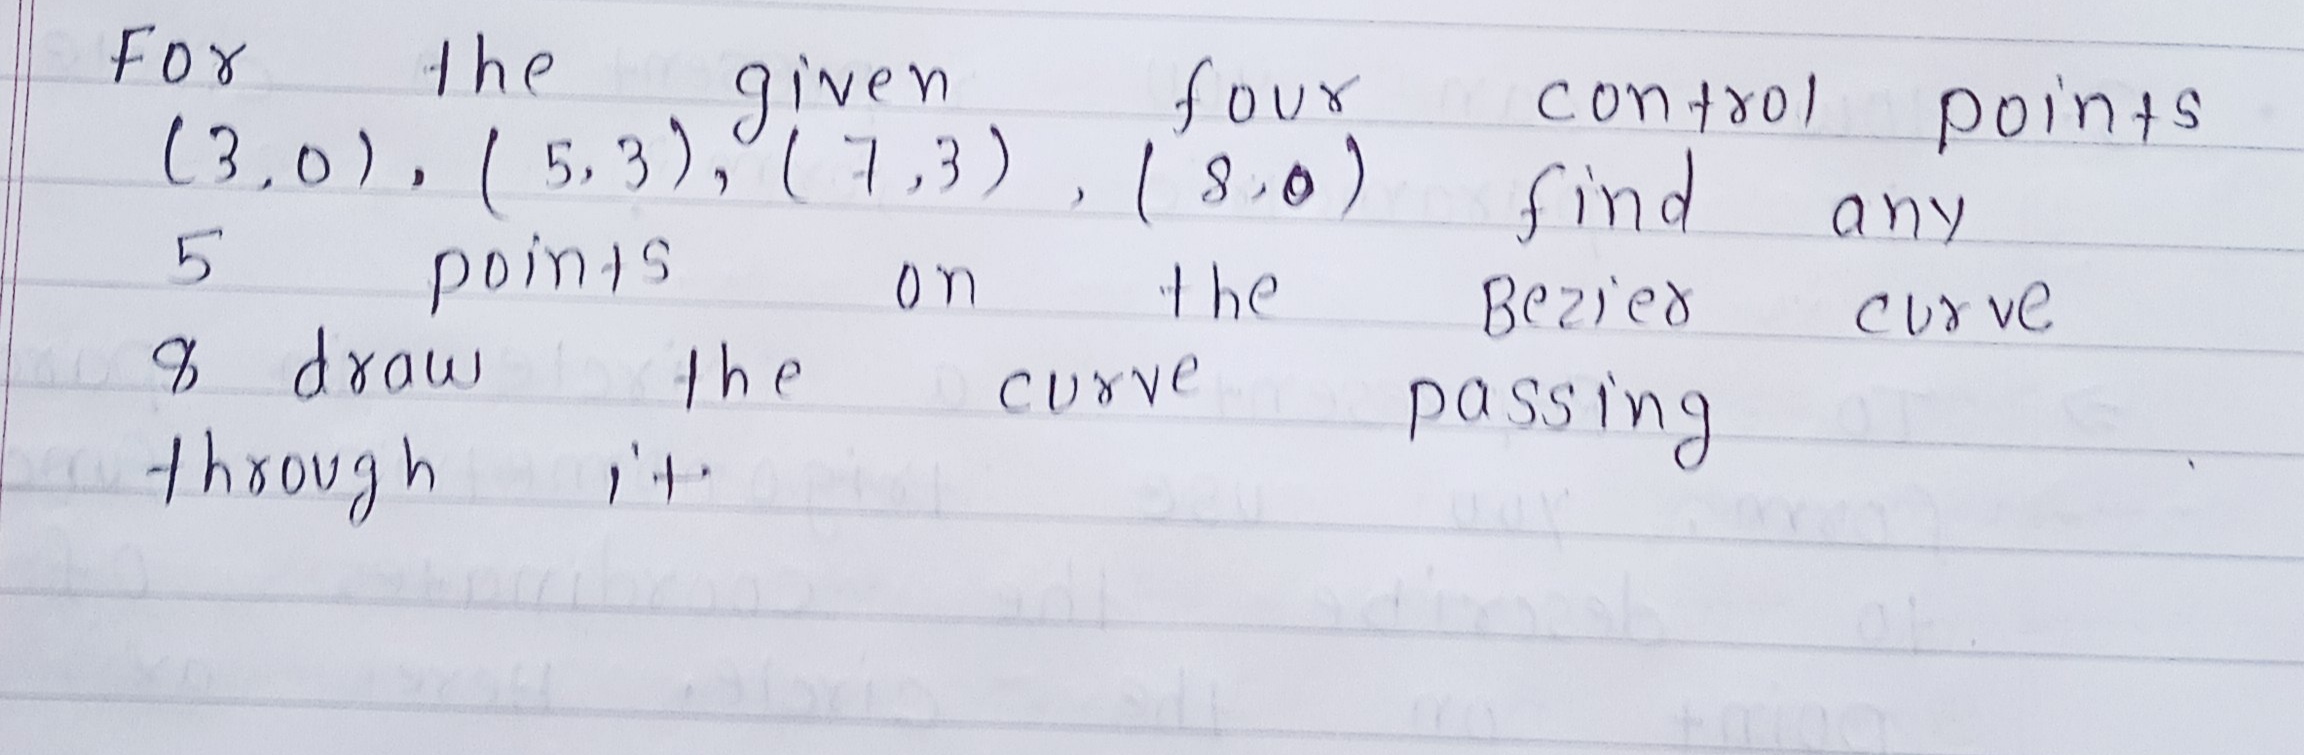 For the given four control points
(3,0), (5,3), (7,3), (8,0) find any
5 points on the Bezier curve
& draw the curve passing
through it.